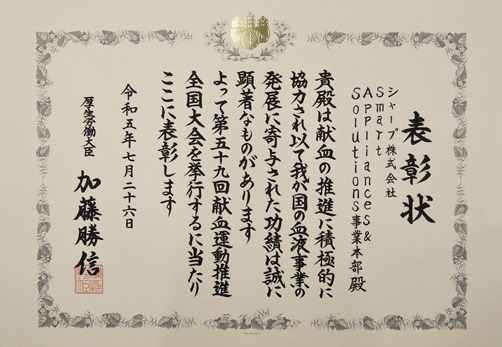 表彰状
シャープ株式会社
Smart
Appliances&
Solutions事業本部 殿
貴殿は献血の推進に積極的に
協力され以て我が国の血液事業の
発展に寄与された功績は誠に
顕著なものがあります
よって第五十九回献血運動推進
全国大会を挙行するに当たり
ここに表彰します
令和五年七月二十六日
厚生労働大臣 加藤勝信